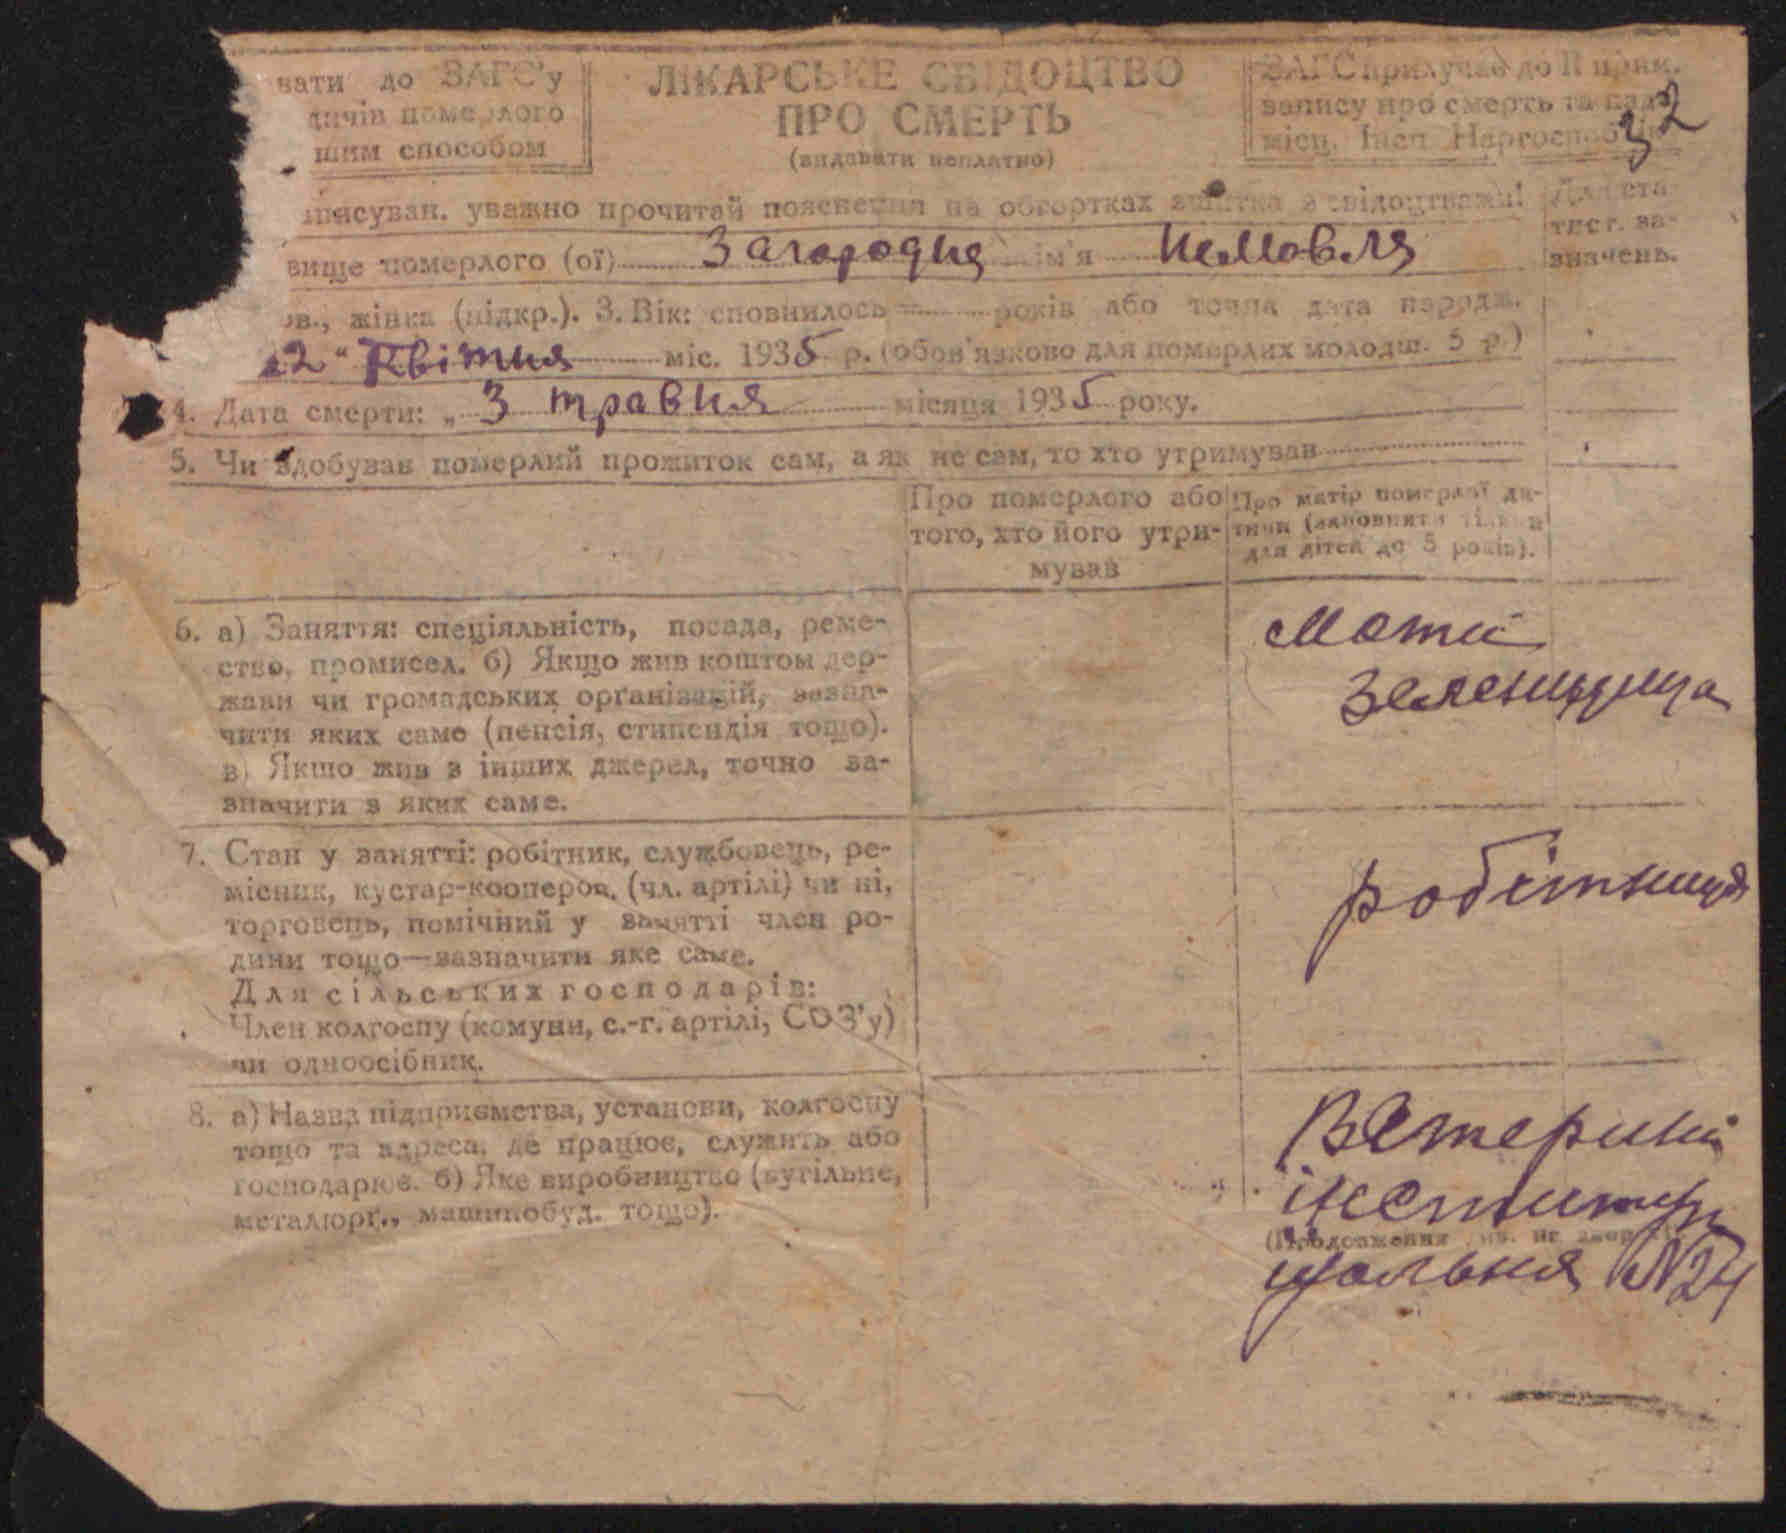 вати до ЗАГС'у
дичів померлого
шим способом
ЛІКАРСЬКЕ СВІДОЦТВО
ПРО СМЕРТЬ
(видавати безплатно)
ЗАГС прилучає до II прим.
запису про смерть та
місц. Інсп. Наргоспобліку
32
уважно прочитай пояснення на обгортках зшитка з свідоцтвами!
Для ста-
тист. за-
значень.
вище померлого (ої) Загородня ім'я Немовля
ов., жінка (підкр.). 3. Вік: сповнилось років або точна дата народж.
22" Квітня міс. 1935 р. (обов'язково для померлих молодш. 5 р.)
4. Дата смерти: „ 3 травня місяця 1935 року.
5. Чи здобував померлий прожиток сам, а як не сам, то хто утримував
Про померлого або
того, хто його утри-
мував
Про матір померлої ди-
тини (заповняти тільки
для дітей до 5 років).
6. а) Заняття: спеціяльність, посада, реме-
ство, промисел. б) Якщо жив коштом дер-
жави чи громадських організацій, зазна-
чити яких саме (пенсія, стипендія тощо).
в) Якщо жив з інших джерел, точно за-
значити з яких саме.
Мати
7. Стан у занятті: робітник, службовець, ре-
місник, кустар-кооперов. (чл. артілі) чи ні,
торговець, помічний у занятті член ро-
дини тощо—зазначити яке саме.
Для сільських господарів:
Член колгоспу (комуни, с.-г. артілі, СОЗ'у)
чи одноосібник.
робітниця
8. а) Назва підприємства, установи, колгоспу
тощо та адреса, де працює, служить або
господарює. б) Яке виробництво (вугільне,
металюрг., машинобуд. тощо).
Ветерин
інститут
(Продовження див. на звор
їдальня N24